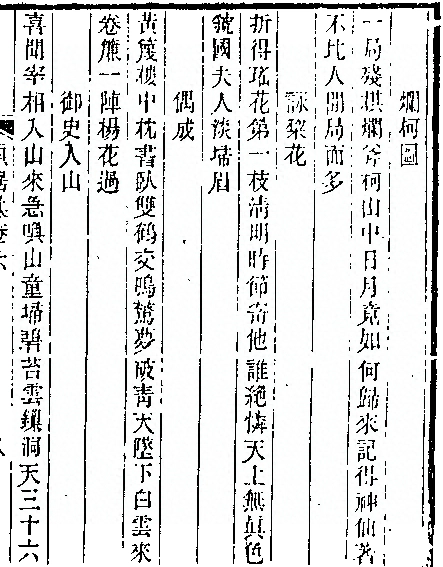 爛柯圖
一局殘棋爛斧柯山中日月竟如何歸來記得神仙著
不比人間局面多
詠梨花
折得瑤花第一枝清明時節寄他誰絕憐天上無真色
虢國夫人淡埽眉
偶成
黃篾樓中枕書臥雙鶴交鳴驚夢破青天墜下白雲來
卷簾一陣楊花過
御史入山
喜聞宰相入山來急喚山童埽碧苔雲鎖洞天三十六